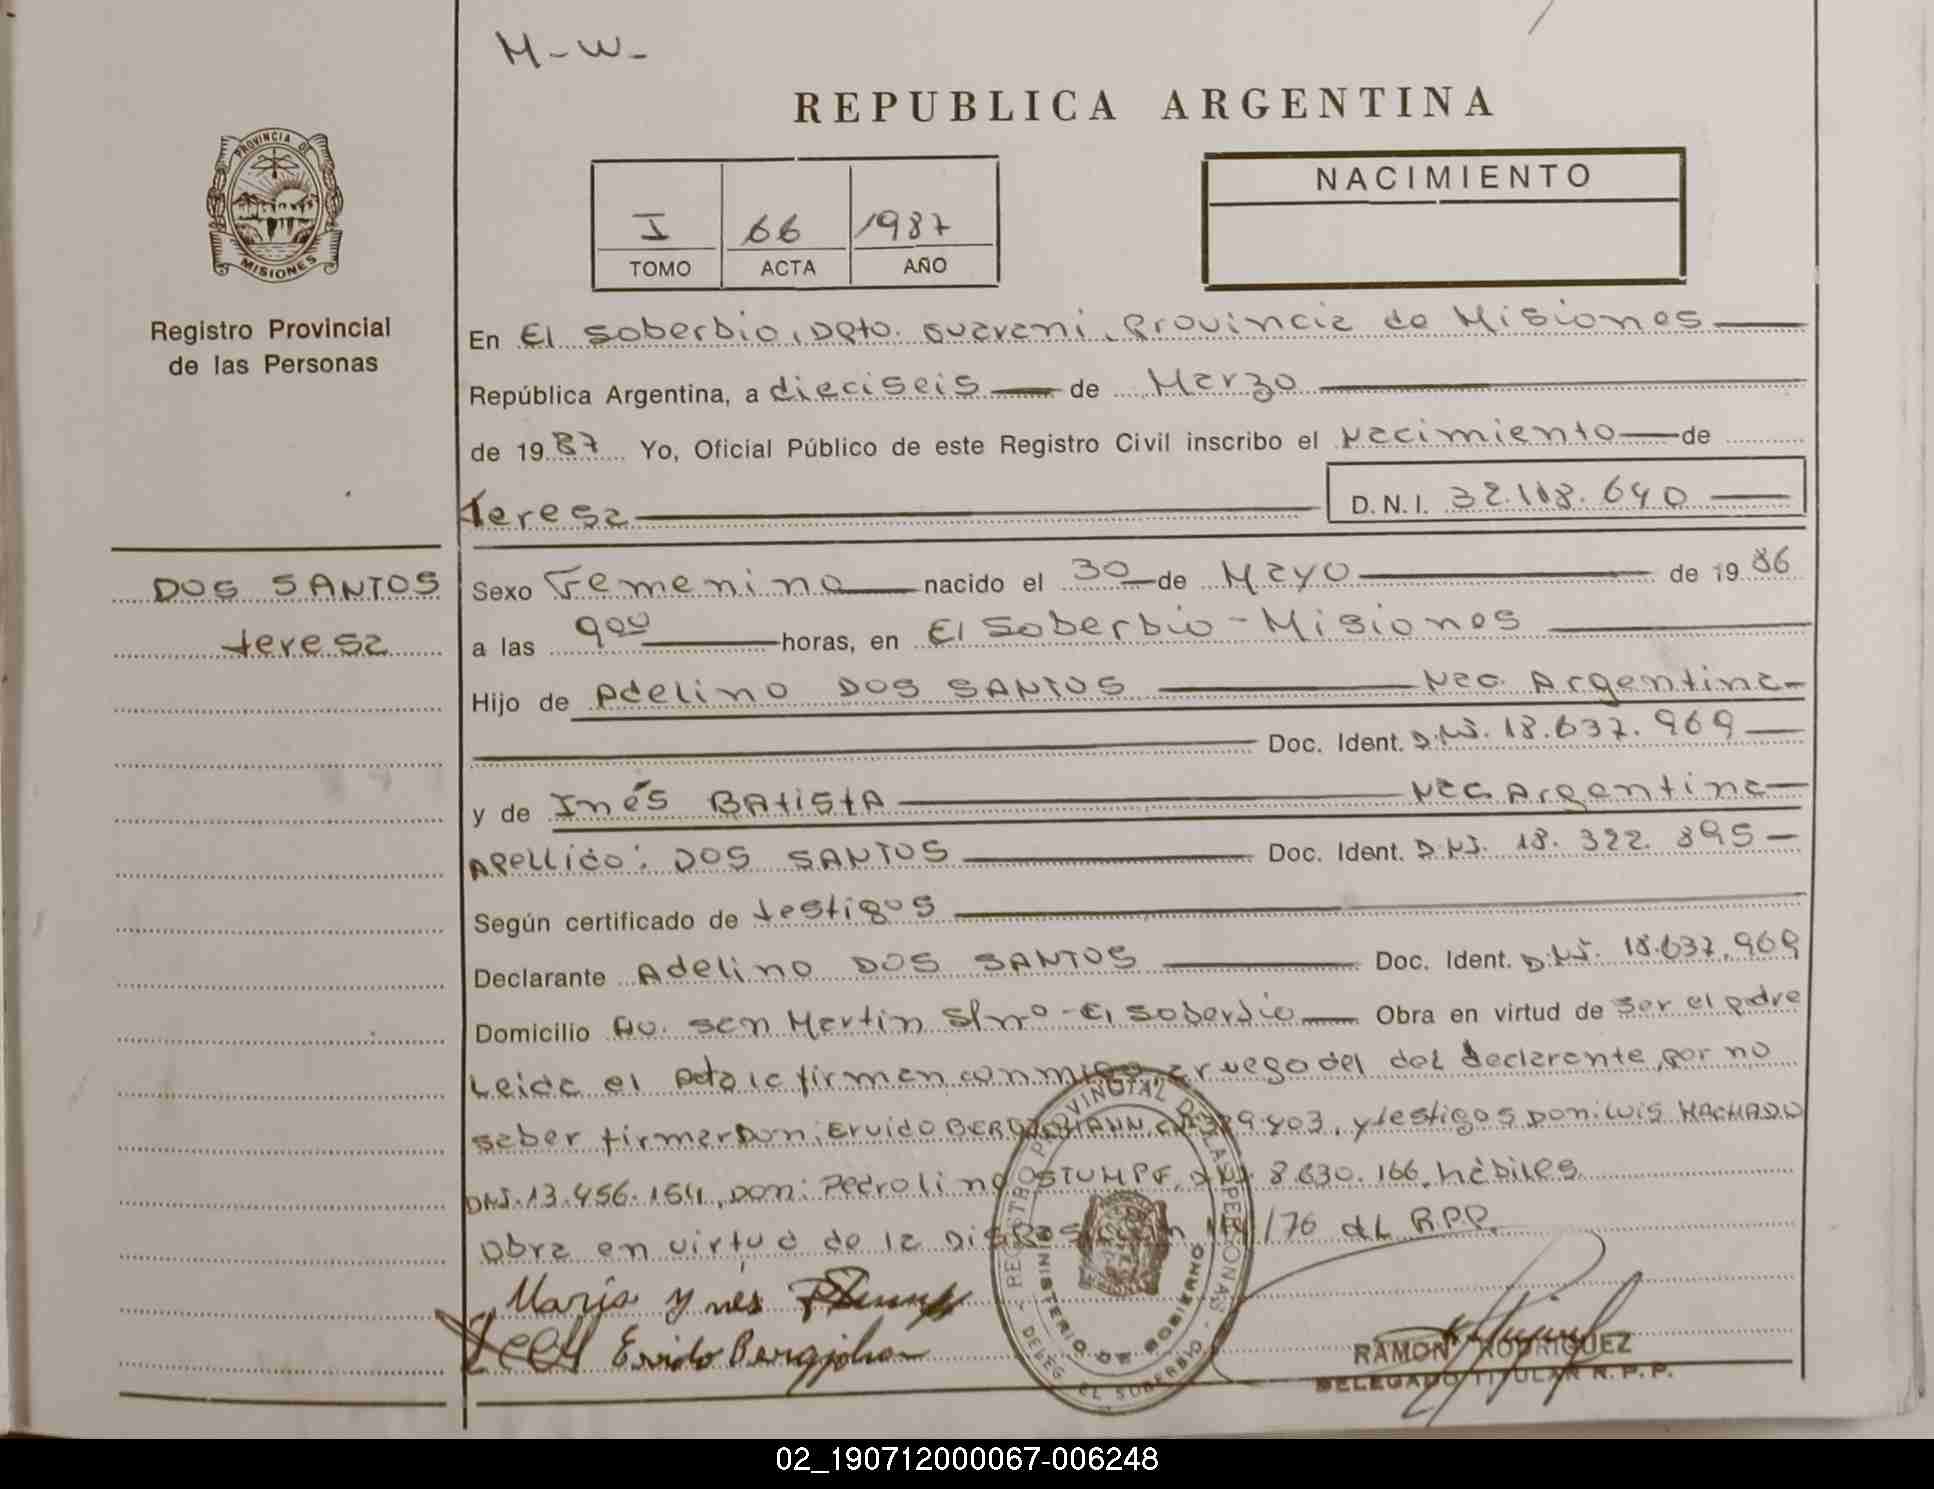 M-W-
REPUBLICA ARGENTINA
PROVINCIA DE
MISIONES
Registro Provincial
de las Personas
I 66 1987
TOMO ACTA AÑO
NACIMIENTO
En El Soberbio, Dpto. Guarani, Provincia de Misiones
República Argentina, a dieciseis de Marzo
de 1987 Yo, Oficial Público de este Registro Civil inscribo el Nacimiento de
Teresa D.N.I. 32.118.640
DOS SANTOS
teresa
Sexo Femenino nacido el 30 de Mayo de 1986
a las 900 horas, en El Soberbio - Misiones
Hijo de Adelino DOS SANTOS Nac. Argentina
Doc. Ident. D.N.I. 18.637.969
y de Inés BAtistA Nac Argentina
Apellido: DOS SANTOS Doc. Ident. D.N.I. 18.322.895
Según certificado de testigos
Declarante Adelino DOS SANTOS Doc. Ident. D.N.I. 18.637.969
Domicilio Av. San Martin S/nº - El Soberbio Obra en virtud de ser el padre
Leida el Acta la firman conmigo a ruego del del declarente, por no
saber firmar Don: Ervido y testigos Don: Luis MACHADO
DNI. 13.456.154, Don: Pedrolino STUMPF, DNI 8.630.166, hábiles
Obra en virtud de la /76 del R.P.P.
REGISTRO PROVINCIAL DE LAS PERSONAS
MINISTERIO DE GOBIERNO
DELEG. EL SOBERBIO
Maria Ynes
Ervido
RAMON RODRIGUEZ
DELEGADO TITULAR R.P.P.
02_190712000067-006248